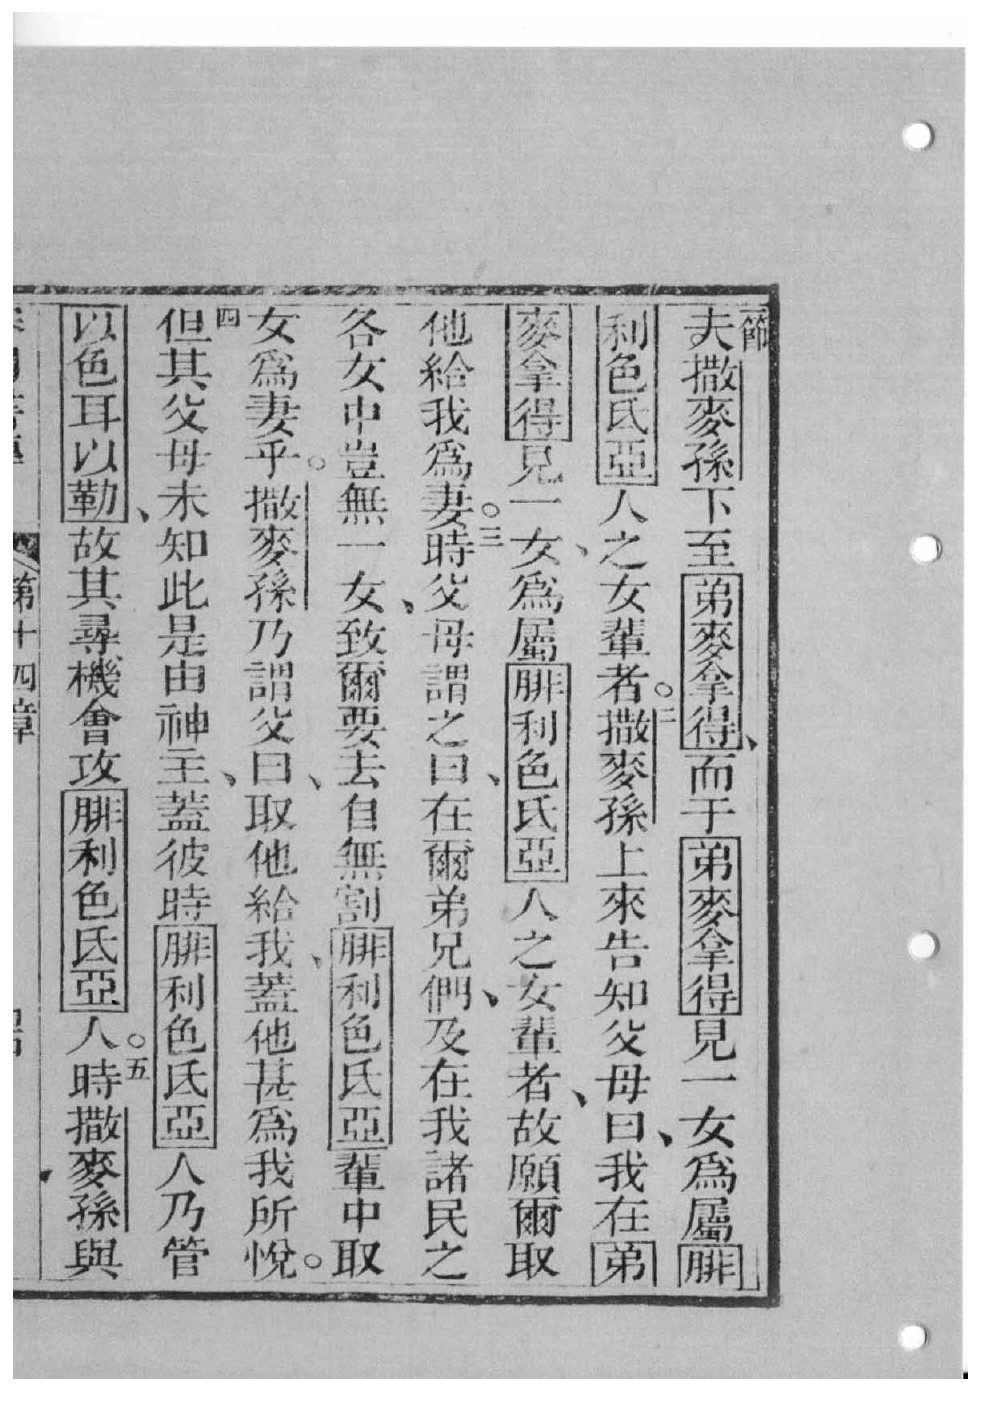 節
夫撒麥孫下至弟麥拿得、而于弟麥拿得見一女為屬腓
利色氏亞人之女輩者。二撒麥孫上來告知父母曰、我在弟
麥拿得見一女、為屬腓利色氏亞人之女輩者、故願爾取
他給我為妻。三時父母謂之曰、在爾弟兄們、及在我諸民之
各女中豈無一女、致爾要去自無割腓利色氏亞輩中取
女為妻乎。撒麥孫乃謂父曰、取他給我、蓋他甚為我所悅。
四但其父母未知此是由神主、蓋彼時腓利色氏亞人乃管
以色耳以勒、故其尋機會攻腓利色氏亞人。五時撒麥孫與
第十四章